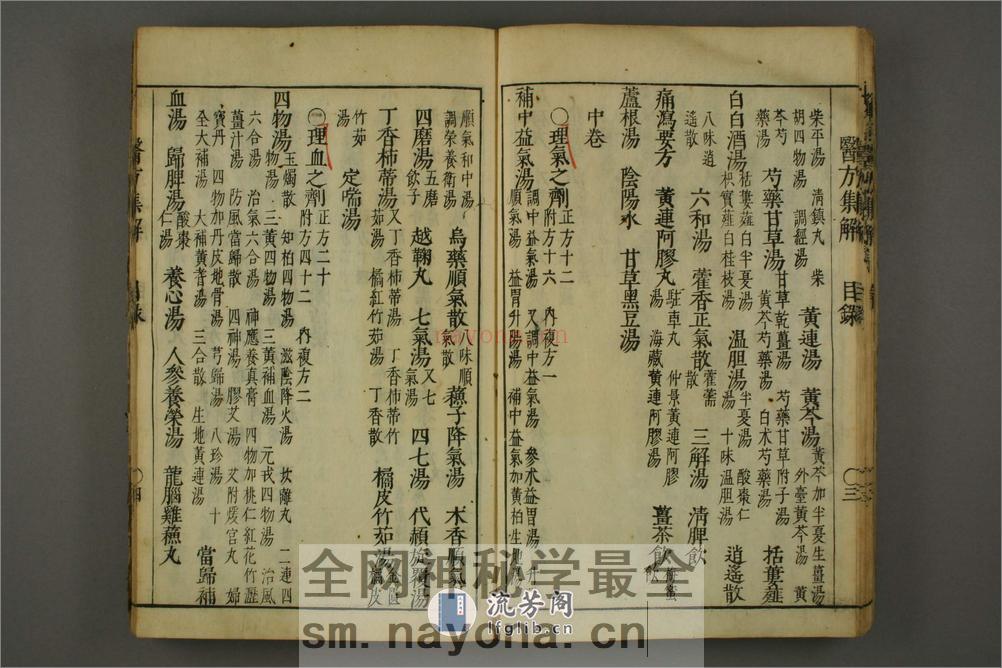 柴平湯 清鎮丸 柴
胡四物湯 調經湯
黃連湯 黃芩湯
黃芩加半夏生薑湯
外臺黃芩湯 黃
芩芍
藥湯
芍藥甘草湯
甘草乾薑湯 芍藥甘草附子湯
黃芩芍藥湯 白术芍藥湯
栝蔞薤
白白酒湯
栝蔞薤白半夏湯
枳實薤白桂枝湯
溫胆湯
半夏湯 酸棗仁
湯 十味溫胆湯
逍遙散
八味逍
遙散
六和湯 藿香正氣散
藿薷
散
三解湯 清脾飲
痛瀉要方 黃連阿膠丸
駐車丸 仲景黃連阿膠
湯 海藏黃連阿膠湯
薑茶飲
蘆根湯 陰陽水 甘草黑豆湯
中卷
〇理氣之劑
正方十二
附方十六
內複方一
補中益氣湯
調中益氣湯 又調中益氣湯 參术益胃湯 升
順氣湯 益胃升陽湯 補中益氣加黃柏生地湯
順氣和中湯
調榮養衛湯
烏藥順氣散
八味順
氣散
蘇子降氣湯 木香順氣湯
四磨湯
五磨
飲子
越鞠丸 七氣湯
又七
氣湯
四七湯 代赭旋覆湯
丁香柿蒂湯
又丁香柿蒂湯 丁香柿蒂竹
茹湯 橘紅竹茹湯 丁香散
橘皮竹茹湯
金匱
橘皮
竹茹
湯
定喘湯
〇理血之劑
正方二十
附方四十二
內複方二
四物湯
玉燭散 知柏四物湯 滋陰降火湯 坎離丸 二連四
物湯 三黃四物湯 三黃補血湯 元戎四物湯 治風
六合湯 治氣六合湯 神應養真膏 四物加桃仁紅花竹瀝
薑汁湯 防風當歸散 四神湯 膠艾湯 艾附煖宮丸 婦
寶丹 四物加丹皮地骨湯 芎歸湯 八珍湯 十
全大補湯 大補黃耆湯 三合散 生地黃連湯
當歸補
血湯 歸脾湯
酸棗
仁湯
養心湯 人參養榮湯 龍腦雞蘇丸
醫方集解 目錄 〇三
醫方集解 目錄 〇四
nayona.cn
全网神秘学最全
sm.nayona.cn
流芳阁
lfglib.cn